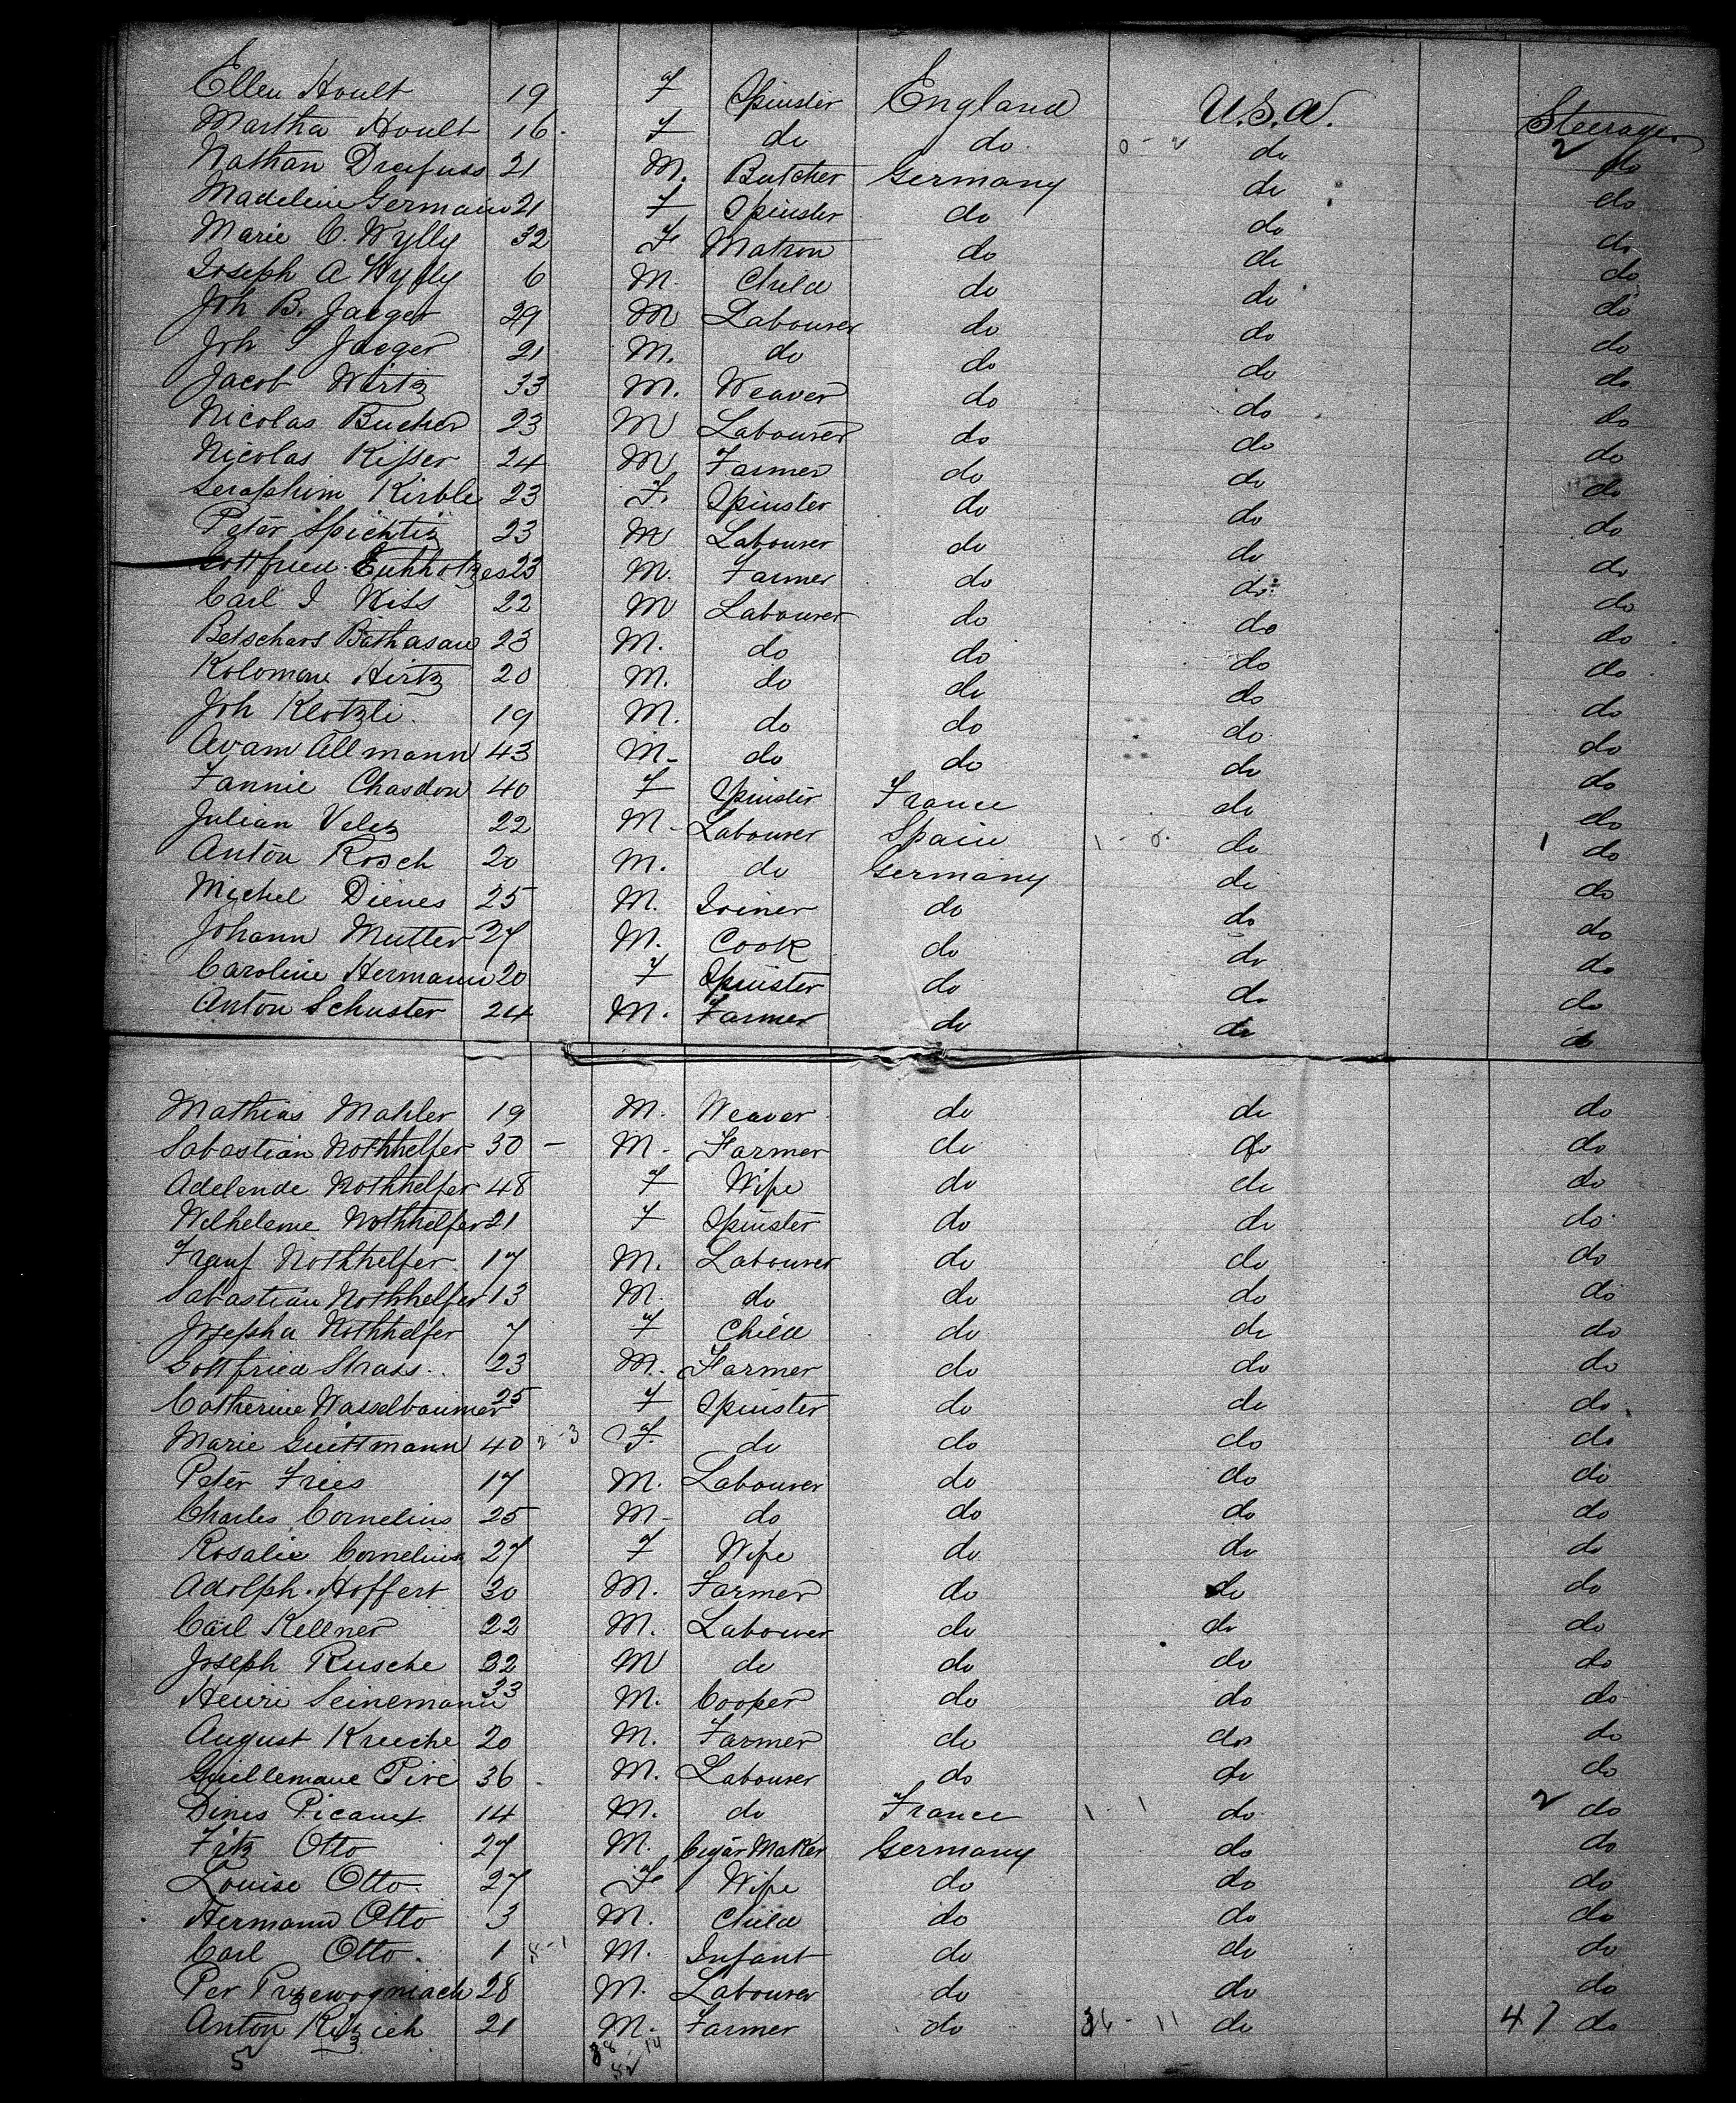 Ellen Hoult 19 F Spinster England U.S.A. Steerage
Martha Hoult 16 F do do 0 - 2 do 2 do
Nathan Dreifuss 21 M. Butcher Germany do do
Madeline Germann 21 F Spinster do do do
Marie C. Wylly 32 F Matron do do do
Joseph A Wylly 6 M. Child do do do
Joh B. Jaeger 29 M Labourer do do do
Joh J Jaeger 21 M. do do do do
Jacob Wirtz 33 M. Weaver do do do
Nicolas Bucher 23 M Labourer do do do
Nicolas Kisser 24 M Farmer do do do
Seraphim Kirble 23 F. Spinster do do do
Peter Spichtig 23 M Labourer do do do
Gottfried 23 M. Farmer do do do
Carl J Wiss 22 M Labourer do do do
Betschars Bathasau 23 M. do do do do
Kolomane Hirtz 20 M. do do do do
Joh Klotzli 19 M. do do do do
Avam Allmann 43 M. do do do do
Fannie Chasdon 40 F Spinster France do do
Julian Velez 22 M. Labourer Spain 1 - 0 do 1 do
Anton Rosch 20 M. do Germany do do
Michel Dienes 25 M. Joiner do do do
Johann Mutter 27 M. Cook do do do
Caroline Hermann 20 F Spinster do do do
Anton Schuster 24 M. Farmer do do do
Mathias Mahler 19 M. Weaver do do do
Sabastian Nothhelfer 30 - M. Farmer do do do
Adelende Nothhelfer 48 F Wife do do do
Welheleme Nothhelfer 21 F Spinster do do do
Franf Nothhelfer 17 M. Labourer do do do
Sabastian Nothhelfer 13 M. do do do do
Josepha Nothhelfer 7 F Child do do do
Gottfried Strass 23 M. Farmer do do do
Catherine Wasselbaumer 25 F Spinster do do do
Marie Guittmann 40 2 - 3 F. do do do do
Peter Fries 17 M. Labourer do do do
Charles Cornelius 25 M. do do do do
Rosalie Cornelius 27 F Wife do do do
Adolph Hoffert 30 M. Farmer do do do
Carl Kellner 22 M. Labourer do do do
Joseph Rusche 22 M do do do do
Henri Seinemann 33 M. Cooper do do do
August Krueche 20 M. Farmer do do do
Guillemane Piré 36 M. Labourer do do do
Dines Picaux 14 M. do France 1 - 1 do 2 do
Fitz Otto 27 M. Cigar Maker Germany do do
Louise Otto 27 F Wife do do do
Hermann Otto 3 M. Child do do do
Carl Otto 1 M. Infant do do do
Per 28 M. Labourer do do do
Anton 21 M. Farmer do 36 - 11 do 47 do
52 38 - 14
52